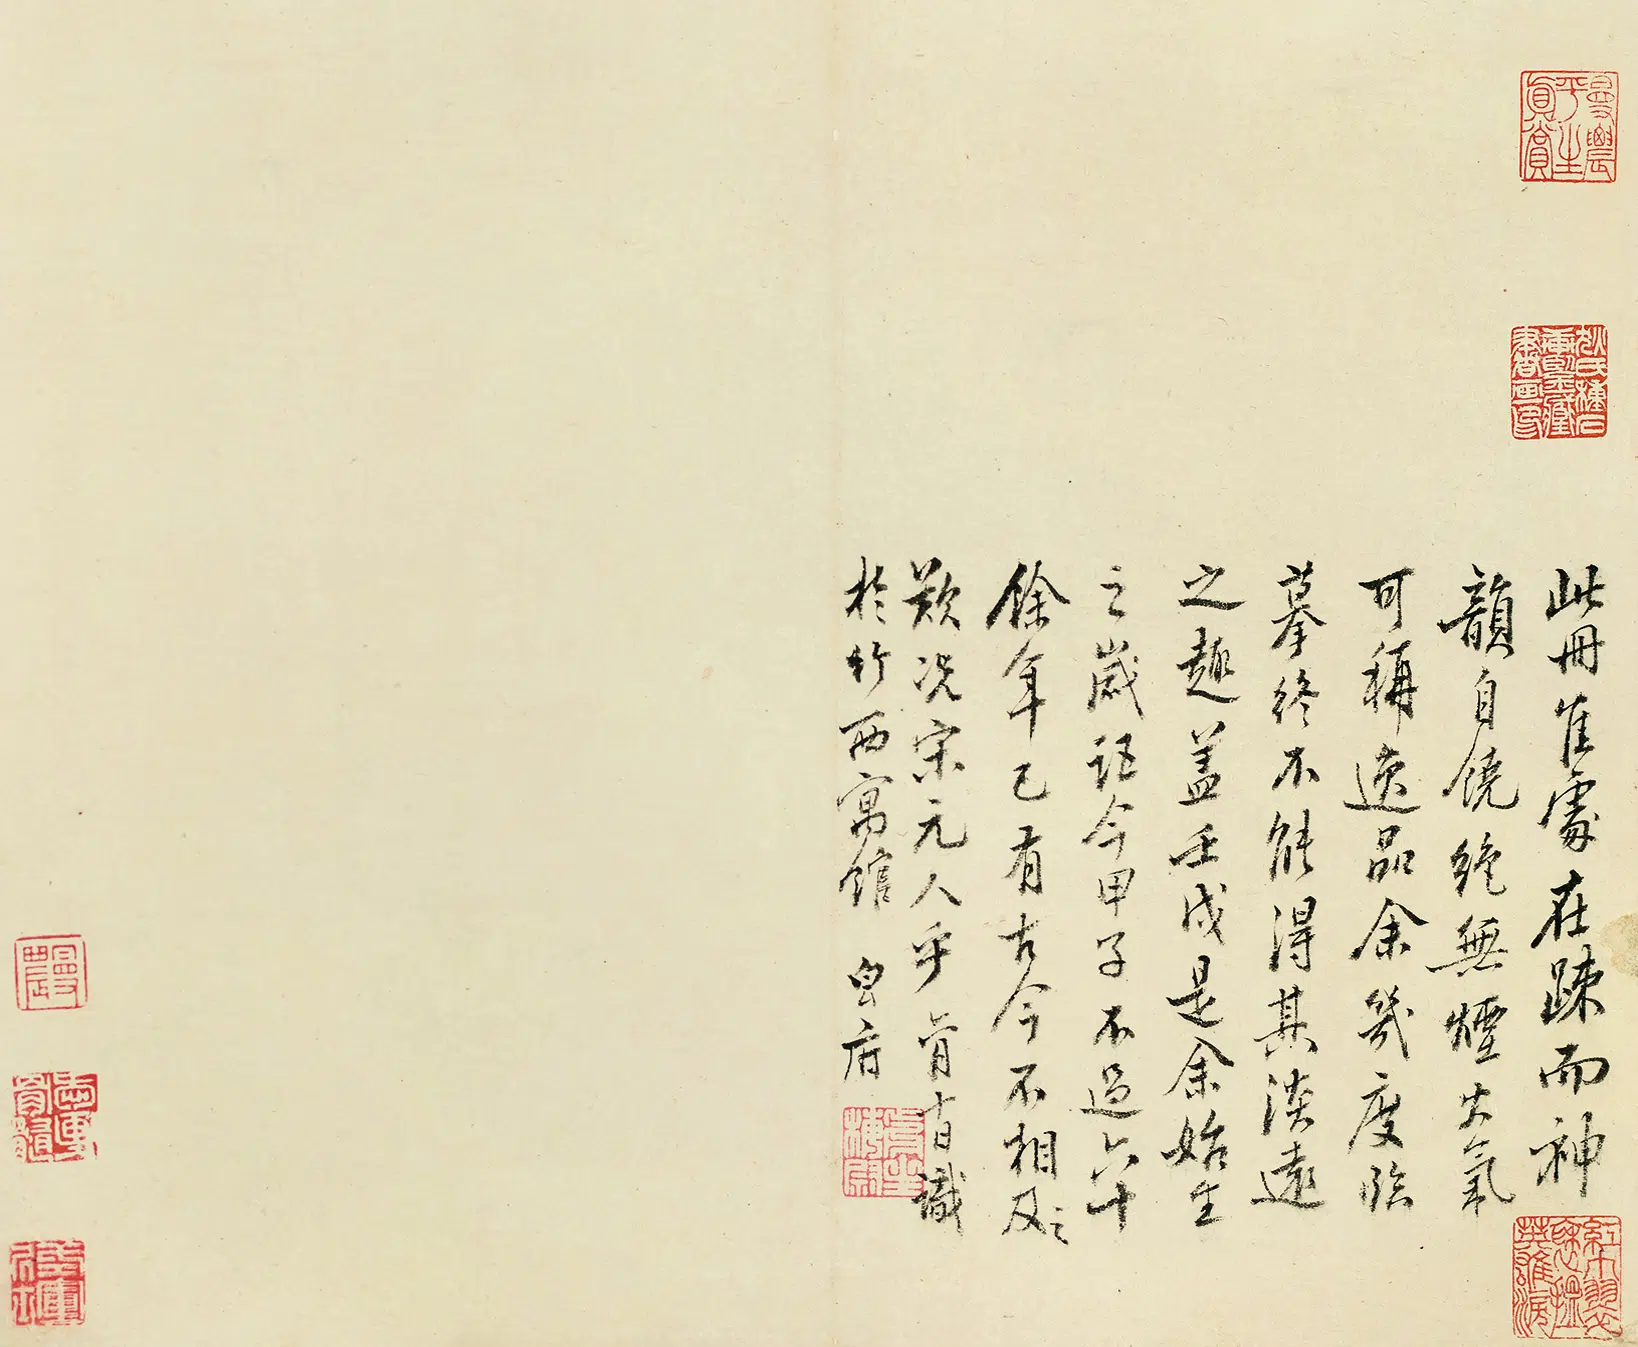 曼農平生真賞
此冊佳處在疎而神
韻自饒絶無煙火氣
可稱逸品余幾度臨
摹終不能得其淡遠
之趣蓋壬戌是余始生
之歲距今甲子不過六十
餘年已有古今不相及之
歎况宋元人乎 識
於竹西寓館
曼農